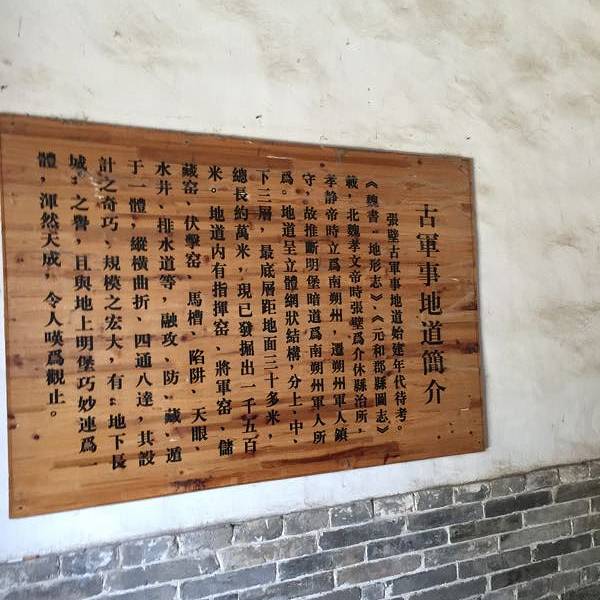 古軍事地道簡介
張壁古軍事地道始建年代待考。
《魏書·地形志》、《元和郡縣圖志》
載，北魏孝文帝時張壁爲介休縣治所，
孝静帝時立爲南朔州，遷朔州軍人鎮
守，故推斷明堡暗道爲南朔州軍人所
爲。地道呈立體網狀結構，分上、中、
下三層，最底層距地面三十多米，
總長約萬米，現已發掘出一千五百
米。地道内有指揮窑、將軍窑、儲
藏窑、伏擊窑、馬槽、陷阱、天眼、
水井、排水道等，融攻、防、藏、遁
于一體，縱横曲折、四通八達，其設
計之奇巧、規模之宏大，有“地下長
城”之譽，且與地上明堡巧妙連爲一
體，渾然天成，令人嘆爲觀止。